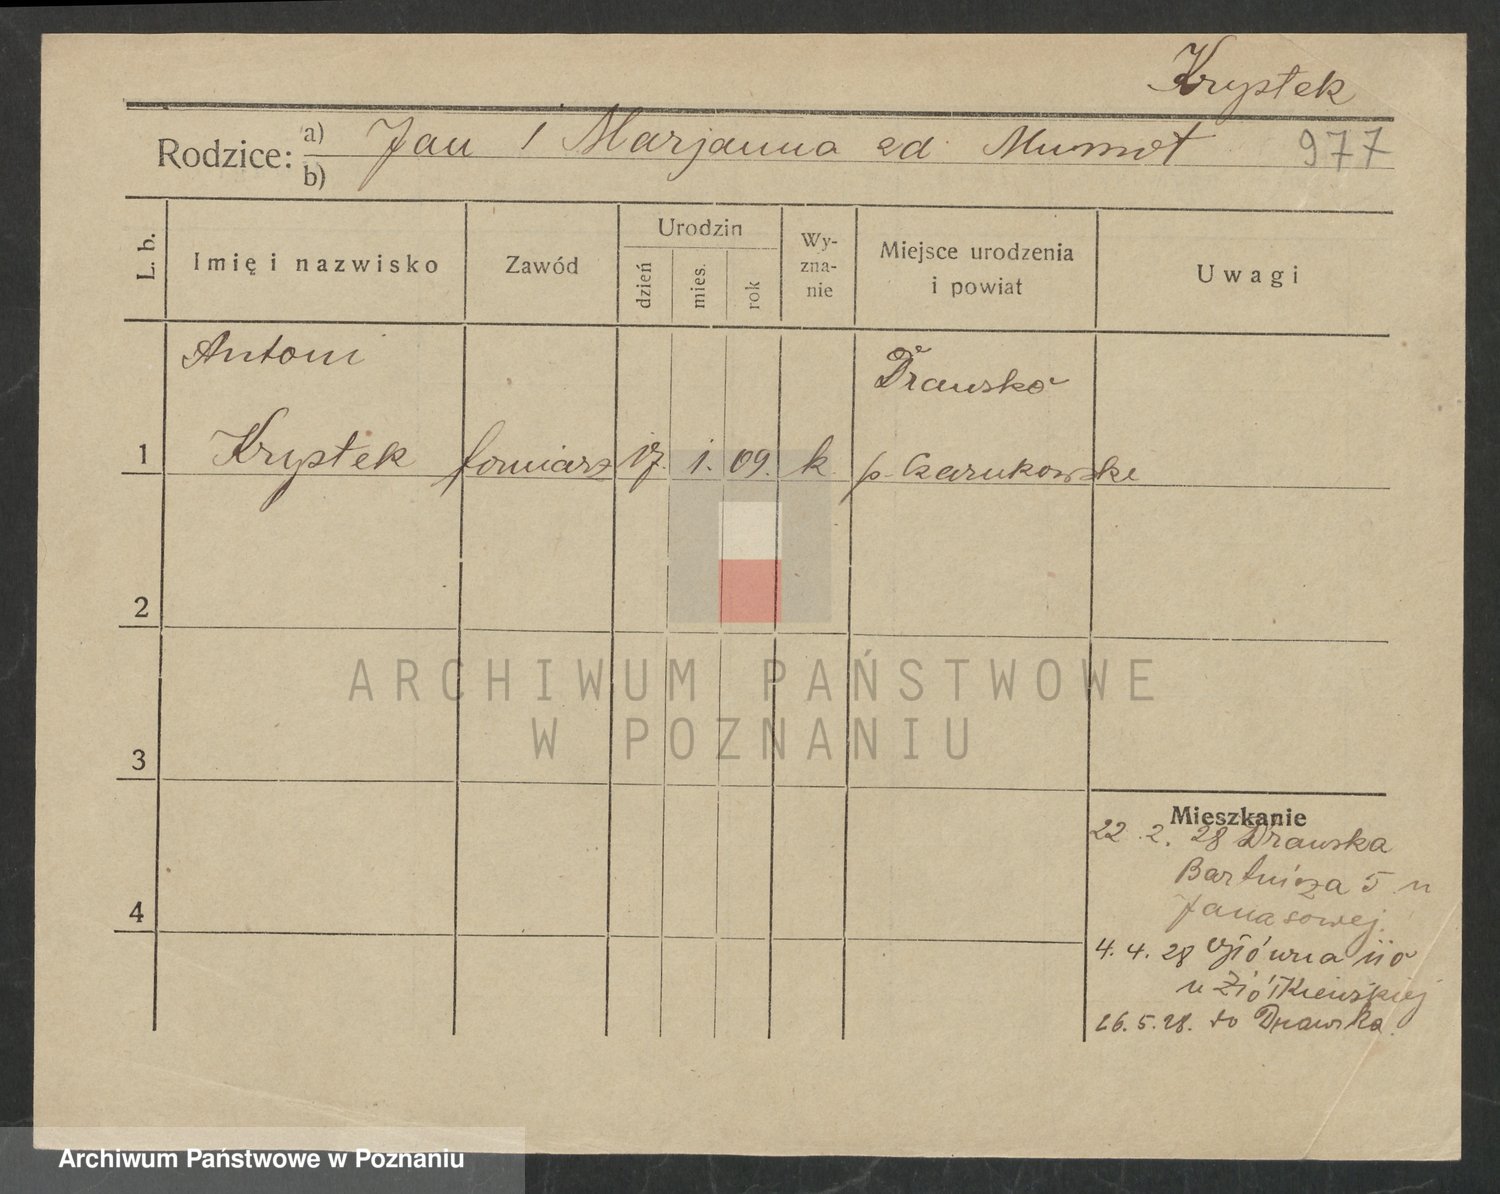 Krystek
Rodzice: a) b) Jan i Marjanna zd Mumot 977
L. b. Imię i nazwisko Zawód Urodzin dzień mies. rok Wy-zna-nie Miejsce urodzenia i powiat Uwagi
Antoni Drausko
1 Krystek forniarz 17. 1. 09. k p. Czarnkowske
2
3
4
ARCHIWUM PAŃSTWOWE
W POZNANIU
Mieszkanie
22.2.28 Drauska
Bartnicza 5 u
Janasowej.
4.4.28 Główna 110
u Ziółkiewskiej
26.5.28. do Drawska.
Archiwum Państwowe w Poznaniu